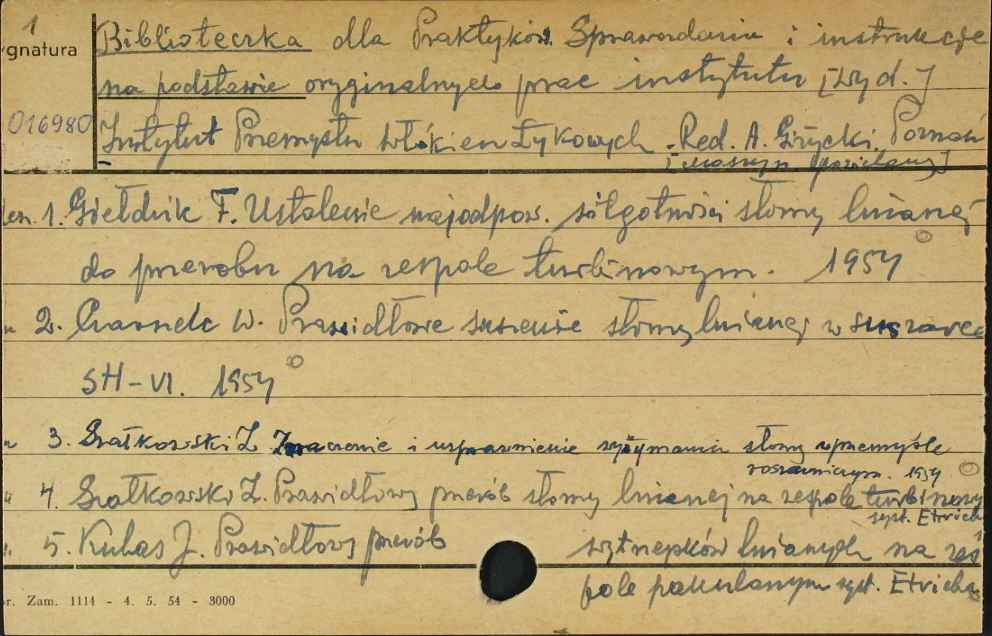 1
gnatura
016980
Biblioteczka dla Praktyków. Sprawozdania i instrukcje
na podstawie oryginalnych prac instytutu [Wyd.]
Instytut Przemysłu Włókien Łykowych. Red. A. Giżycki. Poznań
[maszyn. powielany]
1. Giełdzik F. Ustalenie najodpow. wilgotności słomy lnianej
do przerobu na zespole turbinowym. 1954
2. Czarnecki W. Prawidłowe suszenie słomy lnianej w suszarce
SH-VI. 1954
3. Szałkowski Z. Znaczenie i usprawnienie wyżymania słomy w przemyśle
roszarniczym. 1954
4. Szałkowski Z. Prawidłowy przerób słomy lnianej na zespole turbinowy
syst. Etricha
5. Kubas J. Prawidłowy przerób wytrzepków lnianych na zes
pole pakulanym syst. Etricha
r. Zam. 1114 - 4. 5. 54 - 3000